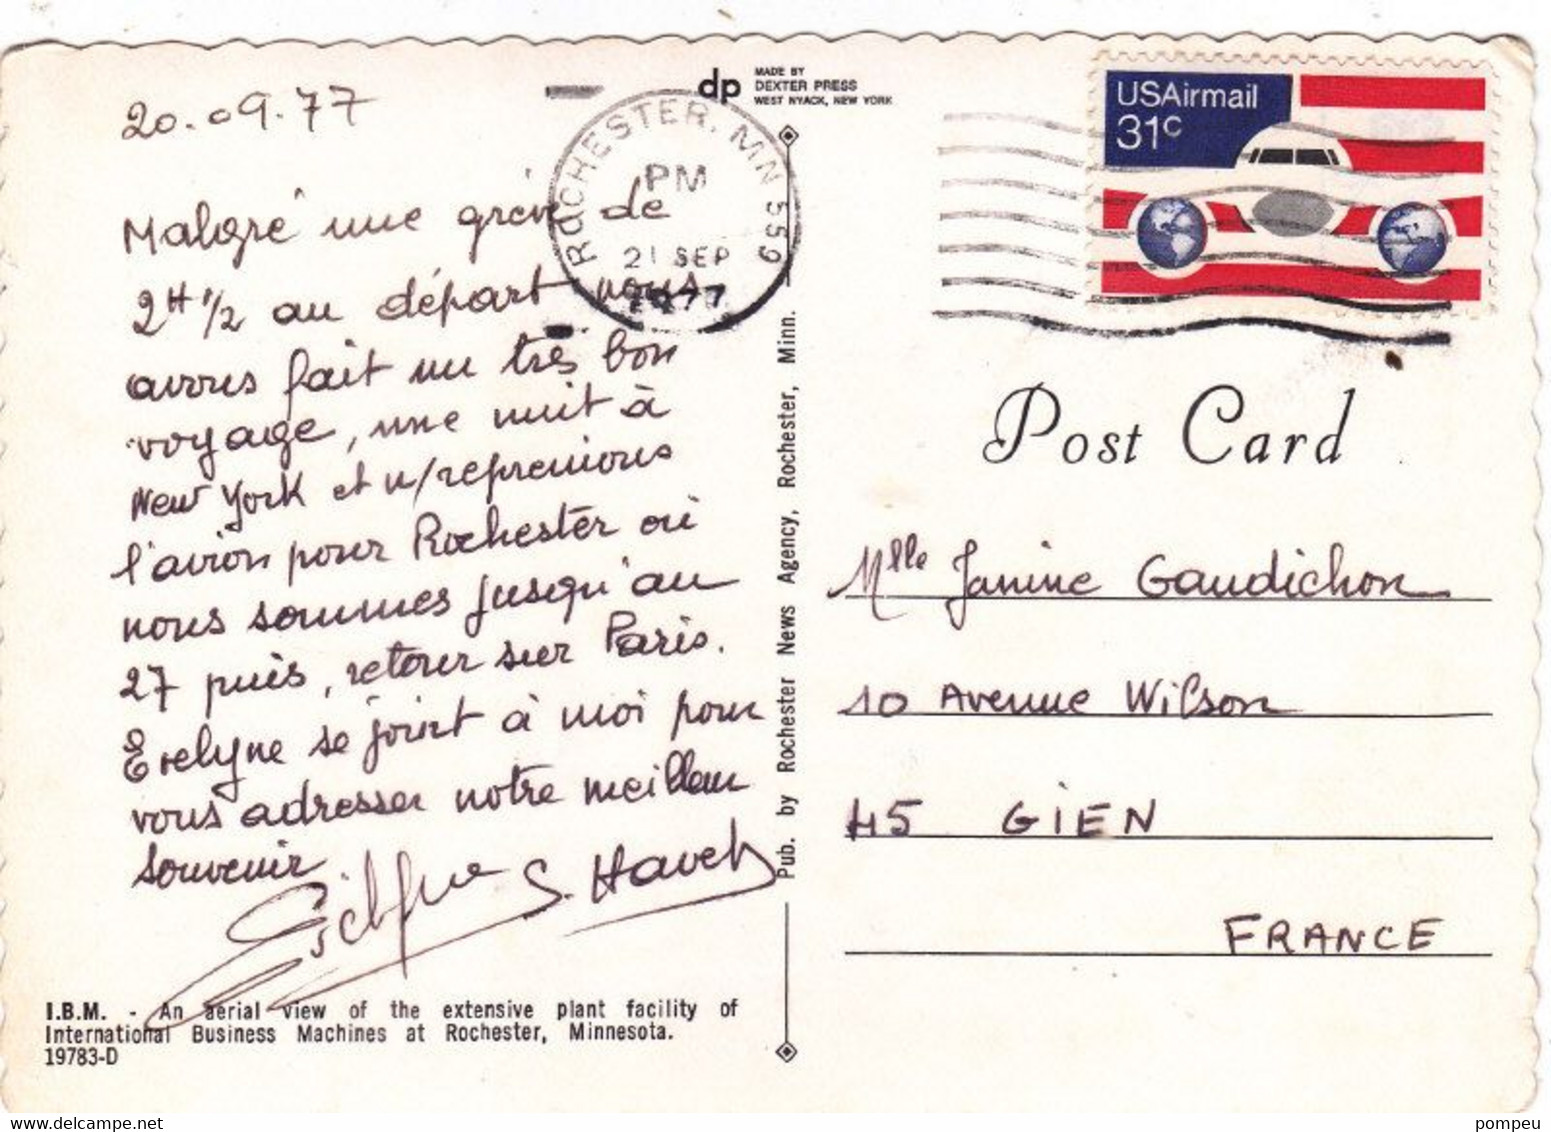 20.09.77
Malgré une grève de
2H 1/2 au départ nous
avons fait un très bon
voyage, une nuit à
New York et n/reprenions
l'avion pour Rochester où
nous sommes jusqu'au
27 puis, retour sur Paris.
Evelyne se joint à moi pour
vous adresser notre meilleur
souvenir
I.B.M. - An aerial view of the extensive plant facility of
International Business Machines at Rochester, Minnesota.
19783-D
dp
MADE BY
DEXTER PRESS
WEST NYACK, NEW YORK
ROCHESTER, MN 559
PM
21 SEP
1977
Pub. by Rochester News Agency, Rochester, Minn.
USAirmail
31c
Post Card
Mlle Janine Gaudichon
10 Avenue Wilson
45 GIEN
FRANCE
pompeu